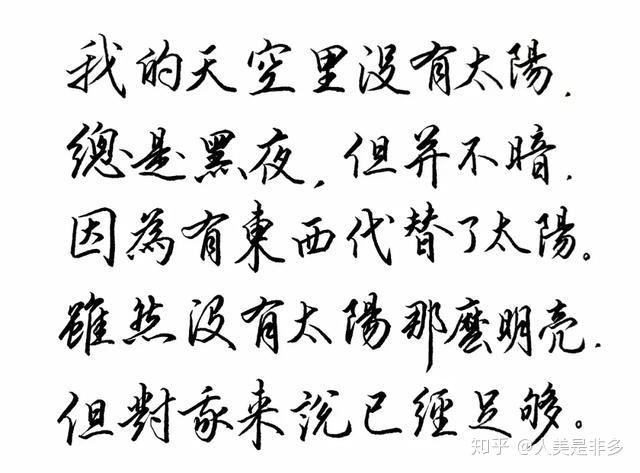 我的天空里没有太陽.
總是黑夜,但并不暗.
因為有東西代替了太陽。
雖然没有太陽那麽明亮.
但對我来説已經足够。
知乎 @人美是非多